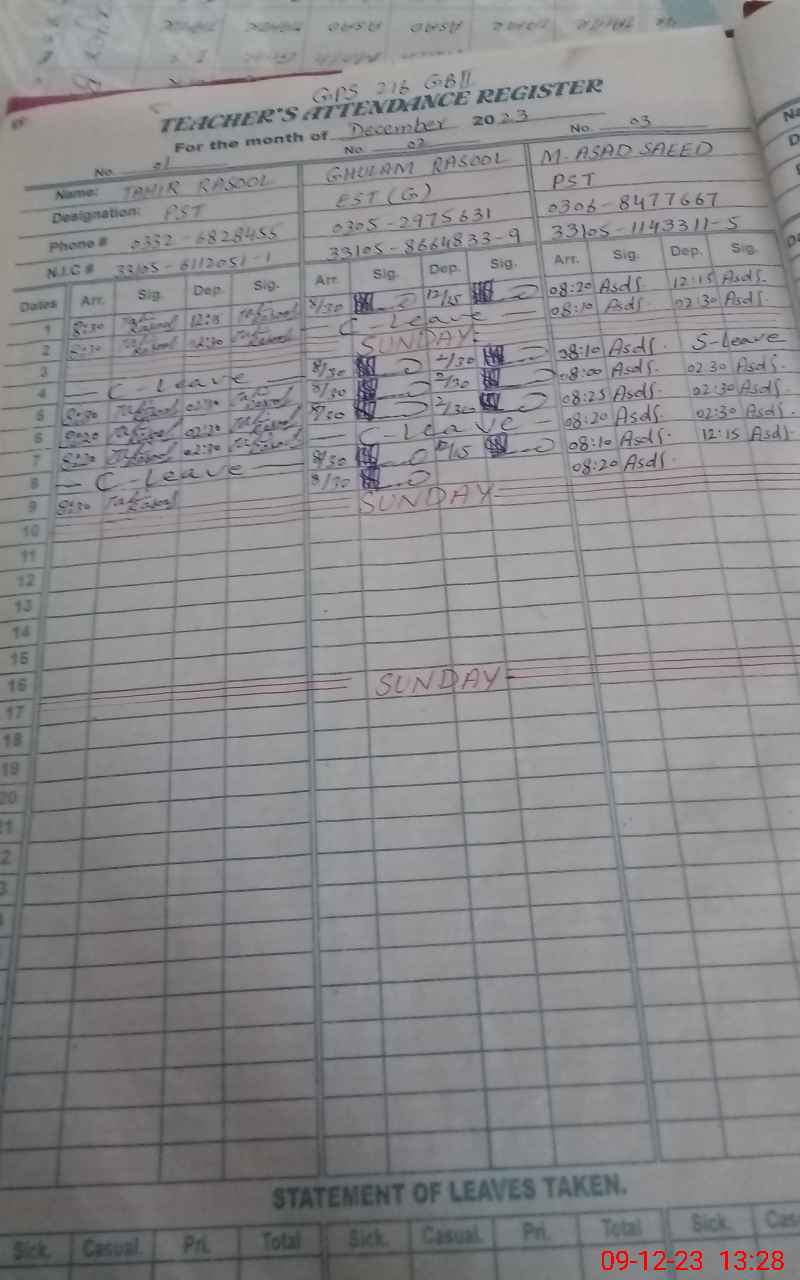 GPS 216 GBII
TEACHER'S ATTENDANCE REGISTER
For the month of December 2023
No. 01 No. 02 No. 03
Name: TAHIR RASOOL GHULAM RASOOL M. ASAD SAEED
Designation: PST EST (G) PST
Phone # 0332-6828455 0305-2975631 0306-8477667
N.I.C # 33105-6112051-1 33105-8664833-9 33105-1143311-5
Dates Arr. Sig. Dep. Sig. Arr. Sig. Dep. Sig. Arr. Sig. Dep. Sig.
1 8:30 Tahir Rasool 12:15 Tahir Rasool 8/30 12/15 08:20 Asds. 12:15 Asds.
2 8:30 Tahir Rasool 02:30 Tahir Rasool - C-Leave - 08:10 Asds. 02:30 Asds.
3 SUNDAY-
4 - C-Leave - 8/30 2/30 08:10 Asds. S-Leave
5 8:30 Tahir Rasool 02:30 Tahir Rasool 8/30 2/30 08:00 Asds. 02:30 Asds.
6 Tahir Rasool 02:30 Tahir Rasool 8/30 2/30 08:25 Asds. 02:30 Asds.
7 8:30 Tahir Rasool 02:30 Tahir Rasool - C-Leave - 08:20 Asds. 02:30 Asds.
8 - C-Leave - 8/30 12/15 08:10 Asds. 12:15 Asds.
9 8:30 Tahir Rasool 8/30 08:20 Asds.
10 SUNDAY-
11
12
13
14
15
16
17 SUNDAY-
18
19
20
STATEMENT OF LEAVES TAKEN.
Sick. Casual. Pri. Total Sick. Casual. Pri. Total Sick.
09-12-23 13:28